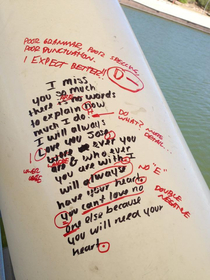 POOR GRAMMAR, POOR SPELLING,
POOR PUNCTUATION.
I EXPECT BETTER!! D-
I miss
you so much
there no words
to explain how
much I do
DO WHAT? MORE DETAIL...
I will always
Love you
where ever you
are & who ever
you are with I
will always
NO "E"
have your heart
you cant love no
DOUBLE NEGATIVE
one else because
you will need your
heart.